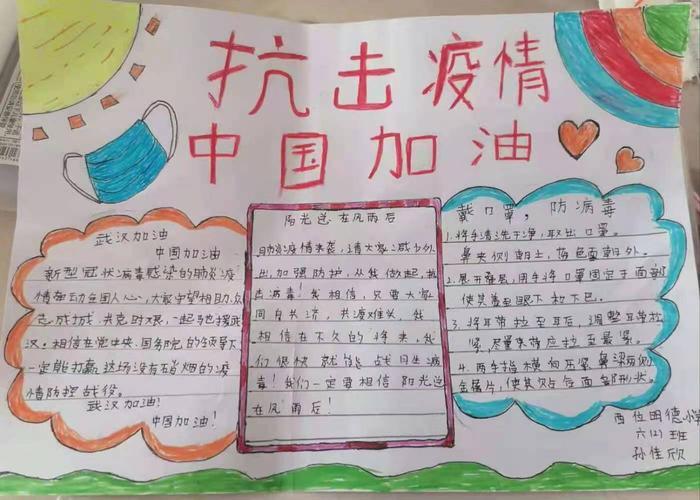 抗击疫情
中国加油
武汉加油
中国加油
新型冠状病毒感染的肺炎疫
情牵动全国人心,大家守望相助,众
志成城,共克时艰,一起驰援武
汉。相信在党中央、国务院的领导下
一定能打赢这场没有硝烟的疫
情防控战役。
武汉加油!
中国加油!
阳光总在风雨后
肺炎疫情来袭,请大家减少外
出,加强防护,从我做起,抗
击病毒!我相信,只要大家
同舟共济,共渡难关,我
相信在不久的将来,我
们很快就能战胜病
毒!我们一定要相信阳光总
在风雨后!
戴口罩,防病毒
1.将手清洗干净,取出口罩。
鼻夹侧朝上,蓝色面朝外。
2.展开褶层,用手将口罩固定于面部
使其覆盖眼下和下巴。
3.将耳带拉至耳后,调整耳带松
紧,尽量
4.两手指横向压紧鼻梁两侧
金属片,使其贴合面部形状。
西位明德小学
六(2)班
孙佳欣